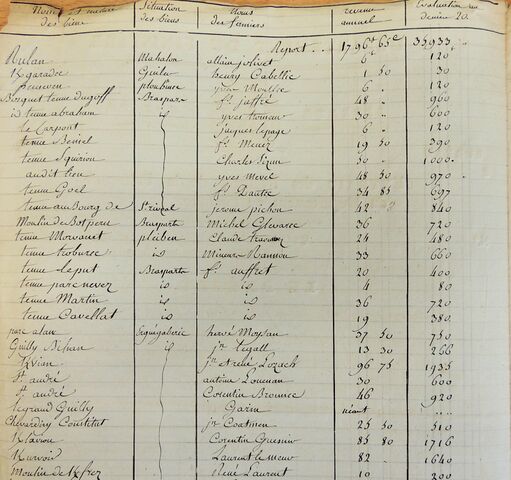 Noms et nature des biens Situation des biens Noms des fermiers revenu annuel Évaluation au denier 20.
Report . . 1796# 65c 35,933
Rulan Mahalon allain jolivet 6# 120
Kgaradec Guilu henry Cabellic 1 50 30
penenven ploubinec yves 6 120
Bosquet tenue dugoff Brasparts fs jaffré 48 960
id tenue abraham id yves 30 600
le Carpont id jacques lepage 6 120
tenue Beniel id fs Menez 19 50 390
tenue Squiriou id Charles Sizun 50 1000
audit lieu id yves Mevel 48 50 970
tenue Goel id fs Dantec 34 85 697
tenue au Bourg de St rivoal jerome pichon 42 840
Moulin de Botpern Brasparts Michel Glevarec 36 720
tenue Morvanet pleiben Claude 24 480
tenue id Bannon 33 660
tenue leput Brasparts fs auffret 20 400
tenue parc nevez id id 4 80
tenue Martin id id 36 720
tenue Cavellat id id 19 380
parc alan hervé Moysan 37 50 750
Guilly Bihan id jn legall 13 30 266
Kvian jn Lozach 96 75 1935
St andré antoine 30 600
St andré Corentin 46 920
legrand Guilly Garin néant
jn Coatmen 25 50 510
Klaviou Corentin Guesnin 85 80 1716
Kurvoix Laurent le meur 82 1640
Moulin de René Laurent 10 200